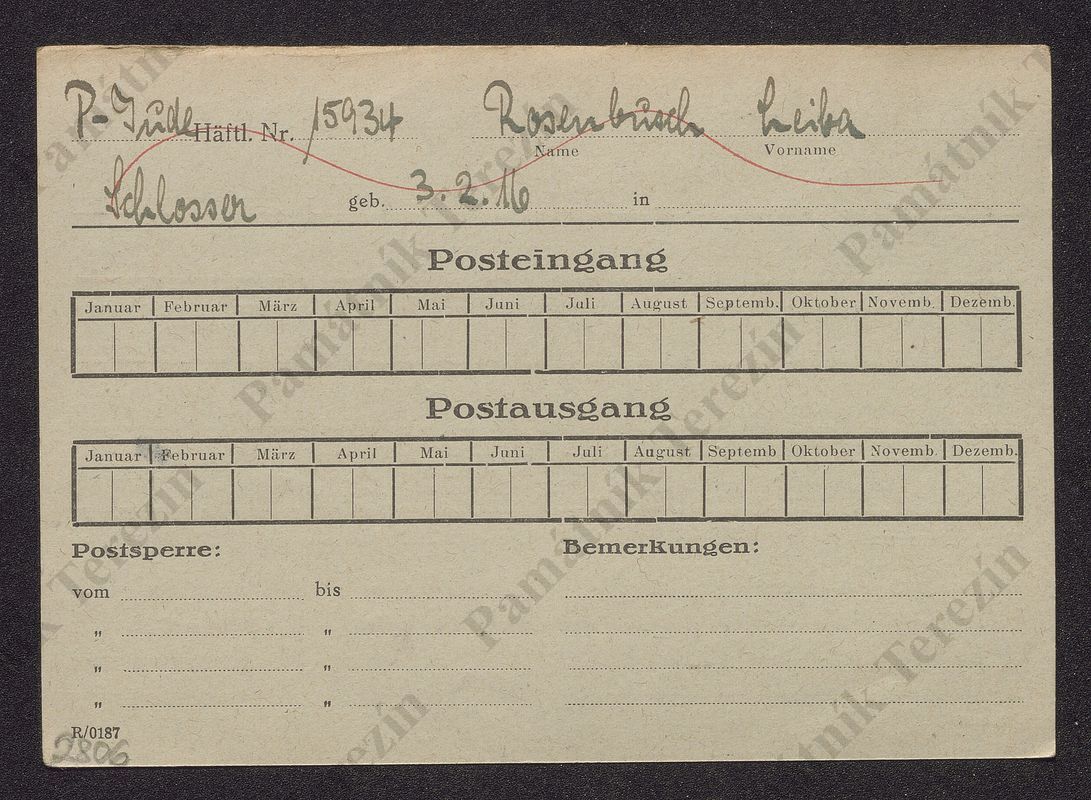 P-Jude Häftl. Nr. 15934 Rosenbusch Leiba
Name Vorname
Schlosser geb. 3. 2. 16 in
Posteingang
Januar Februar März April Mai Juni Juli August Septemb. Oktober Novemb. Dezemb.
Postausgang
Januar Februar März April Mai Juni Juli August Septemb Oktober Novemb. Dezemb.
Postsperre: Bemerkungen:
vom bis
" "
" "
" "
R/0187
2806
Památník Terezín